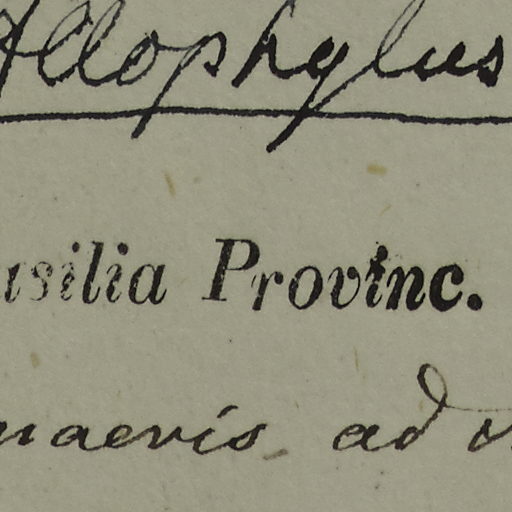 Allophylus
asilia Provinc.
naevis ad